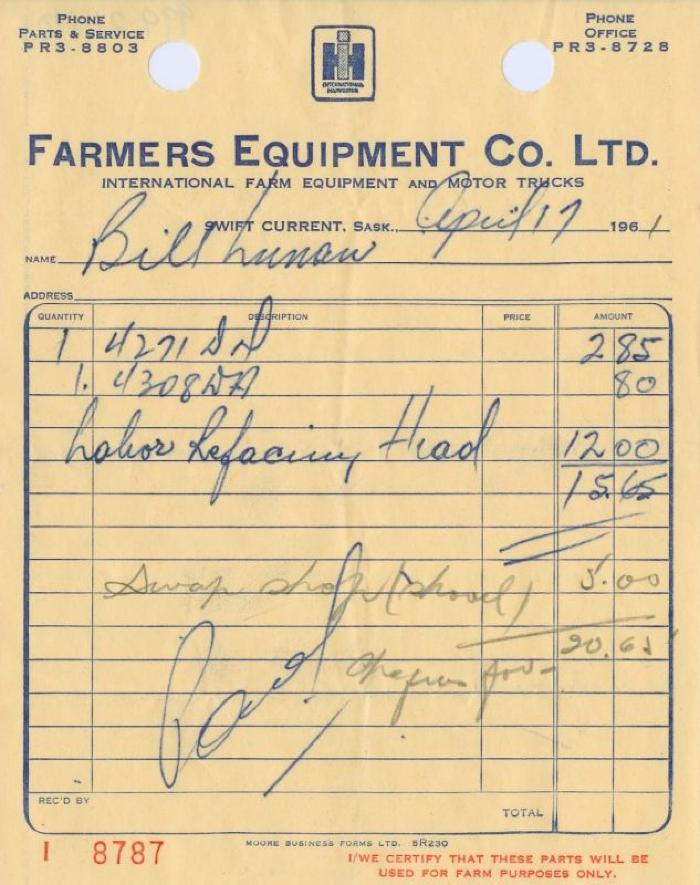 PHONE
PARTS & SERVICE
PR3-8803
PHONE
OFFICE
PR3-8728
IH
INTERNATIONAL
HARVESTER
FARMERS EQUIPMENT CO. LTD.
INTERNATIONAL FARM EQUIPMENT AND MOTOR TRUCKS
SWIFT CURRENT, SASK., April 17 1961
NAME Bill Lunan
ADDRESS
QUANTITY DESCRIPTION PRICE AMOUNT
1 4271 DA 2 85
1. 4308 DA 80
Labor Refacing Head 12 00
15.65
Swap Shop (Shovel) 5.00
20.65
Paid Cheque for
REC'D BY
TOTAL
I 8787
MOORE BUSINESS FORMS LTD. 5R230
I/WE CERTIFY THAT THESE PARTS WILL BE
USED FOR FARM PURPOSES ONLY.